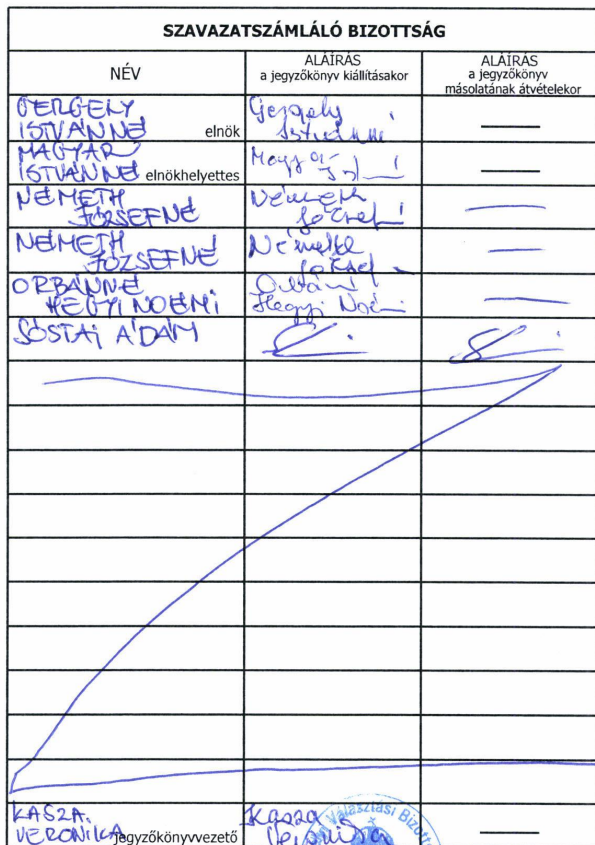 SZAVAZATSZÁMLÁLÓ BIZOTTSÁG
NÉV
ALÁÍRÁS
a jegyzőkönyv kiállításakor
ALÁÍRÁS
a jegyzőkönyv
másolatának átvételekor
GERGELY
ISTVÁNNÉ elnök
Gergely
Istvánné
MAGYAR
ISTVÁNNÉ elnökhelyettes
Magyar
NÉMETH
JÓZSEFNÉ
Németh
NÉMETH
JÓZSEFNÉ
Németh
ORBÁNNÉ
HEGYI NOÉMI
Orbánné
Hegyi Noémi
SÓSTAI ÁDÁM
KASZA
VERONIKA jegyzőkönyvvezető
Kasza
Veronika
Választási Bizott